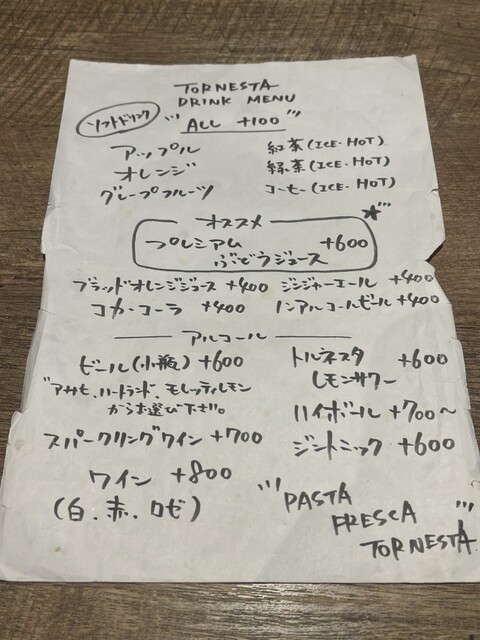 TORNESTA
DRINK MENU
ソフトドリンク
"ALL +100"
アップル 紅茶(ICE・HOT)
オレンジ 緑茶(ICE・HOT)
グレープフルーツ コーヒー(ICE・HOT)
オススメ
プレミアム +600
ぶどうジュース
ブラッドオレンジジュース +400 ジンジャーエール +400
コカ・コーラ +400 ノンアルコールビール +400
アルコール
ビール(小瓶) +600
"アサヒ、ハートランド、モレッティレモン
からお選び下さい。
スパークリングワイン +700
ワイン +800
(白、赤、ロゼ)
トルネスタ +600
レモンサワー
ハイボール +700〜
ジントニック +600
"PASTA
FRESCA
TORNESTA"